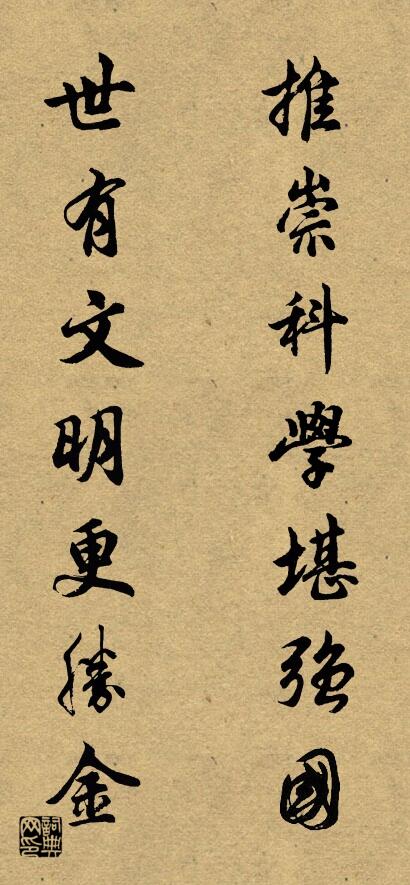 推崇科學堪強國
世有文明更勝金
詞典網印